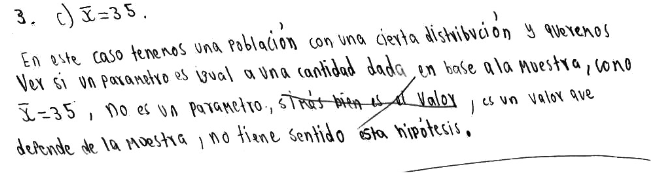 3. c) x̄=35.
En este caso tenemos una población con una cierta distribución y queremos
Ver si un parametro es igual a una cantidad dada, en base a la muestra, como
x̄=35, no es un parametro, si más bien es el valor, es un valor que
depende de la muestra, no tiene sentido esta hipótesis.